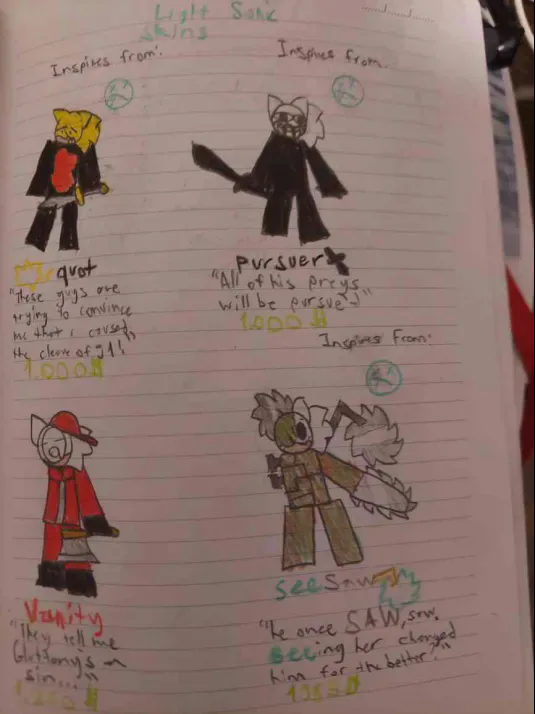 Light Sonic
skins
Inspires from:
Inspires from.
quot
"These guys are
trying to convince
me that i caused
the cleave of g1!"
1.000
pursuer
"All of his preys
will be pursue'd"
1.000
Inspires from:
Vanity
"They tell me
Gluttony's a
sin..."
1.250
SeeSaw
"He once SAW, saw.
seeing her changed
him for the better?"